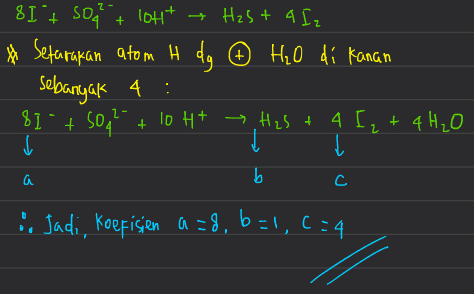 8I⁻ + SO₄²⁻ + 10H⁺ → H₂S + 4 I₂
* Setarakan atom H dg ⊕ H₂O di kanan
sebanyak 4 :
8I⁻ + SO₄²⁻ + 10 H⁺ → H₂S + 4 I₂ + 4H₂O
↓ ↓ ↓
a b c
∴ Jadi, koefisien a = 8, b = 1, c = 4